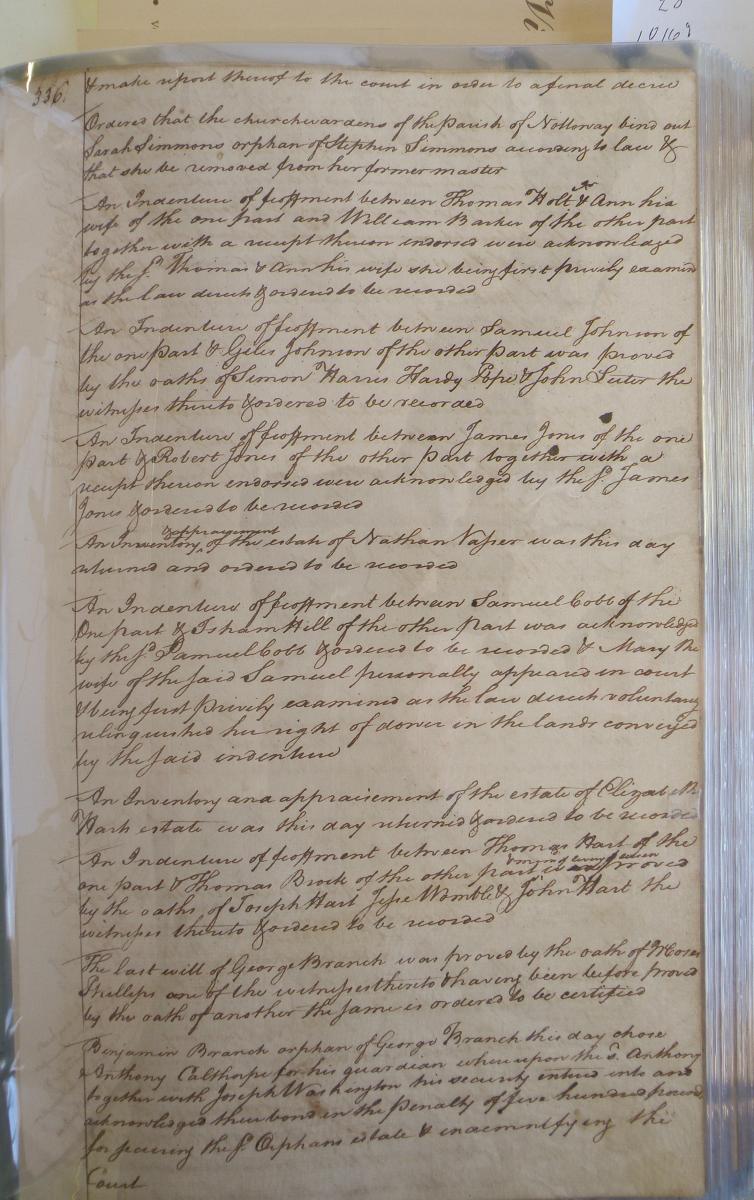 20
10169
336
& make report thereof to the court in order to a final decree
Ordered that the churchwardens of the parish of Nottoway bind out
Sarah Simmons orphan of Stephen Simmons according to law &
that she be removed from her former master
An Indenture of feoffment between Thomas Holt & Ann his
wife of the one part and William Barker of the other part
together with a receipt thereon endorsed were acknowledged
by the sd. Thomas & Ann his wife she being first privily examined
as the law directs & ordered to be recorded
An Indenture of feoffment between Samuel Johnson of
the one part & Giles Johnson of the other part was proved
by the oaths of Simon Harris Hardy Pope & John Suter the
witnesses thereto & ordered to be recorded
An Indenture of feoffment between James Jones of the one
part & Robert Jones of the other part together with a
receipt thereon endorsed were acknowledged by the sd. James
Jones & ordered to be recorded
& appraisement
An Inventory of the estate of Nathan Vasser was this day
returned and ordered to be recorded
An Indenture of feoffment between Samuel Cobb of the
One part & Isham Hill of the other part was acknowledged
by the sd. Samuel Cobb & ordered to be recorded & Mary the
wife of the said Samuel personally appeared in court
& being first privily examined as the law directs voluntary
relinquished her right of dower in the lands conveyed
by the said indenture
An Inventory and appraisement of the estate of Elizabeth
Hart estate was this day returned & ordered to be recorded
An Indenture of feoffment between Thomas Hart of the
one part & Thomas Brock of the other part proved
by the oaths of Joseph Hart Jesse Womble & John Hart the
witnesses thereto & ordered to be recorded
The last will of George Branch was proved by the oath of Moses
Phillips one of the witnesses thereto & having been before proved
by the oath of another the same is ordered to be certified
Benjamin Branch orphan of George Branch this day chose
Anthony Calthorpe for his guardian whereupon the sd. Anthony
together with Joseph Washington his security entered into and
acknowledged their bond in the penalty of five hundred pounds
for securing the sd. Orphans estate & indemnifying the
Court